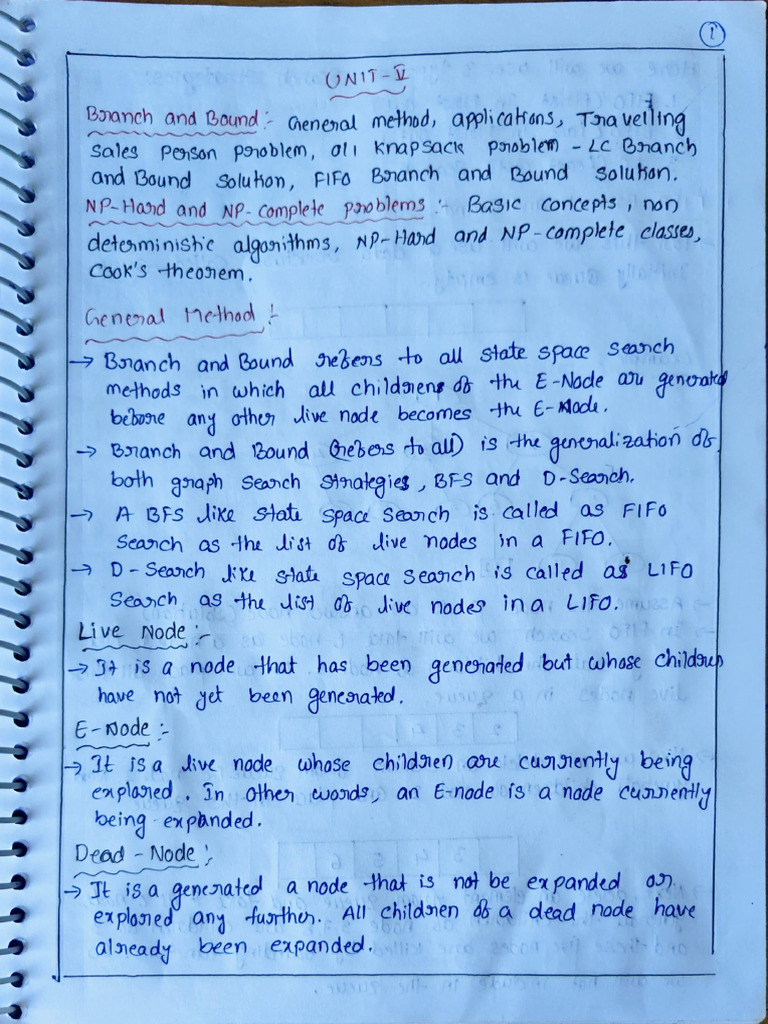 1
UNIT-V
Branch and Bound:- General method, applications, Travelling
sales person problem, 0/1 knapsack problem - LC Branch
and Bound solution, FIFO Branch and Bound solution.
NP-Hard and NP-complete problems:- Basic concepts, non
deterministic algorithms, NP-Hard and NP-complete classes,
Cook's theorem.
General Method:-
→ Branch and Bound refers to all state space search
methods in which all childrens of the E-Node are generated
before any other live node becomes the E-Node.
→ Branch and Bound (refers to all) is the generalization of
both graph search strategies, BFS and D-Search.
→ A BFS like state space search is called as FIFO
search as the list of live nodes in a FIFO.
→ D-Search like state space search is called as LIFO
search as the list of live nodes in a LIFO.
Live Node:-
→ It is a node that has been generated but whose children
have not yet been generated.
E-Node:-
→ It is a live node whose children are currently being
explored. In other words, an E-node is a node currently
being expanded.
Dead-Node:-
→ It is a generated a node that is not be expanded or
explored any further. All children of a dead node have
already been expanded.